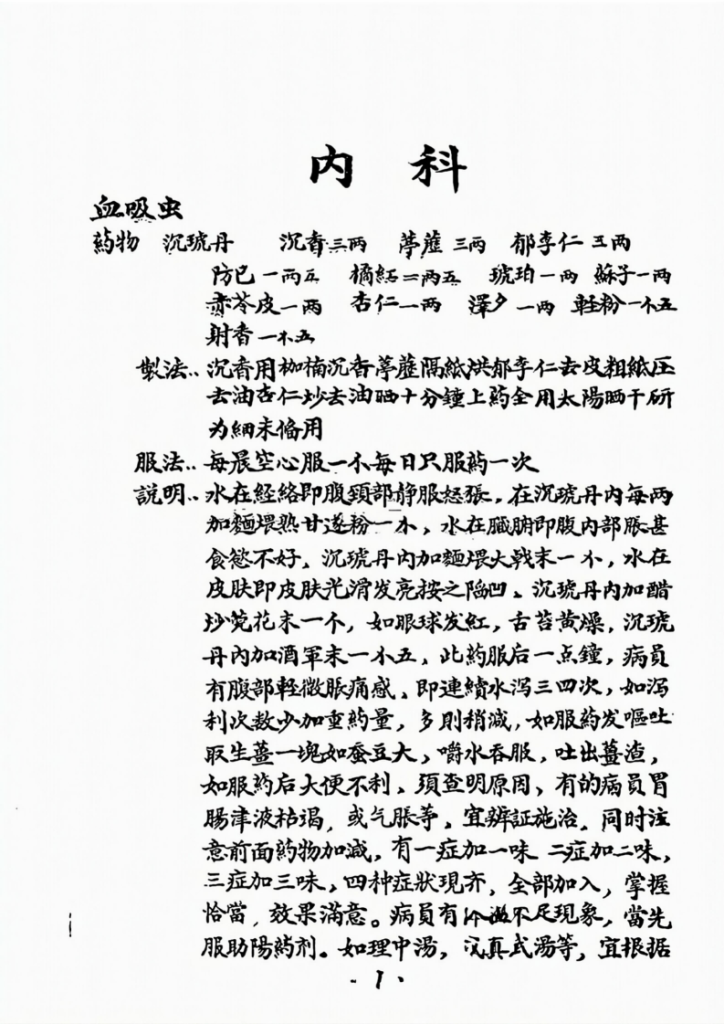 内 科
血吸虫
药物 沉琥丹 沉香三两 葶苈 三两 郁李仁 五两
防已一两五 橘红二两五 琥珀一两 蘇子一两
赤苓皮一两 杏仁一两 澤夕一两 軽粉一小五
射香一小五
製法..沉香用枷楠沉香葶苈隔紙烘郁李仁去皮粗紙压
去油杏仁炒去油晒十分鐘上药全用太陽晒干研
为細末俻用
服法..每晨空心服一小每日只服药一次
説明..水在経絡即腹頚部静服怒張。在沉琥丹内每两
加麺煨熟甘遂粉一小，水在臓腑即腹内部脹甚
食慾不好。沉琥丹内加麺煨大戟末一小，水在
皮肤即皮肤光滑发亮按之陷凹。沉琥丹内加醋
炒芫花末一个，如眼球发紅，舌苔黄燥，沉琥
丹内加酒軍末一小五，此药服后一点鐘，病員
有腹部軽微脹痛感。即連續水泻三四次，如泻
利次数少加重药量，多則稍減，如服药发嘔吐
取生薑一塊如蚕豆大，嚼水吞服，吐出薑渣，
如服药后大便不利、須查明原因，有的病員胃
腸津液枯竭，或气脹等，宜辨証施治。同时注
意前面药物加減，有一症加一味 二症加二味，
三症加三味，四种症狀現齐，全部加入，掌握
恰當，效果滿意。病員有 不足現象，當先
服助陽药剂。如理中湯， 真武湯等，宜根据
- 1 -